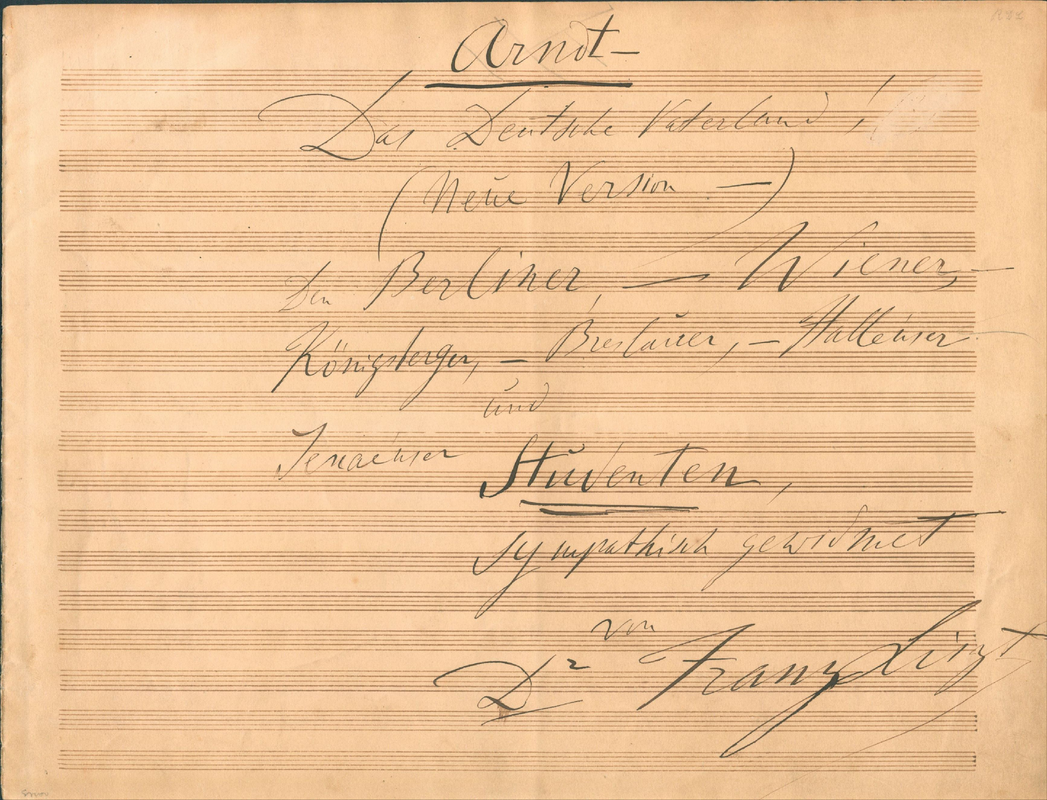 Arndt —
Das Deutsche Vaterland!
(Neue Version —)
Den Berliner, — Wiener, —
Königsberger, — Breslauer, — Hallenser
und
Jenaenser Studenten,
sympathisch gewidmet
von
Dr Franz Liszt